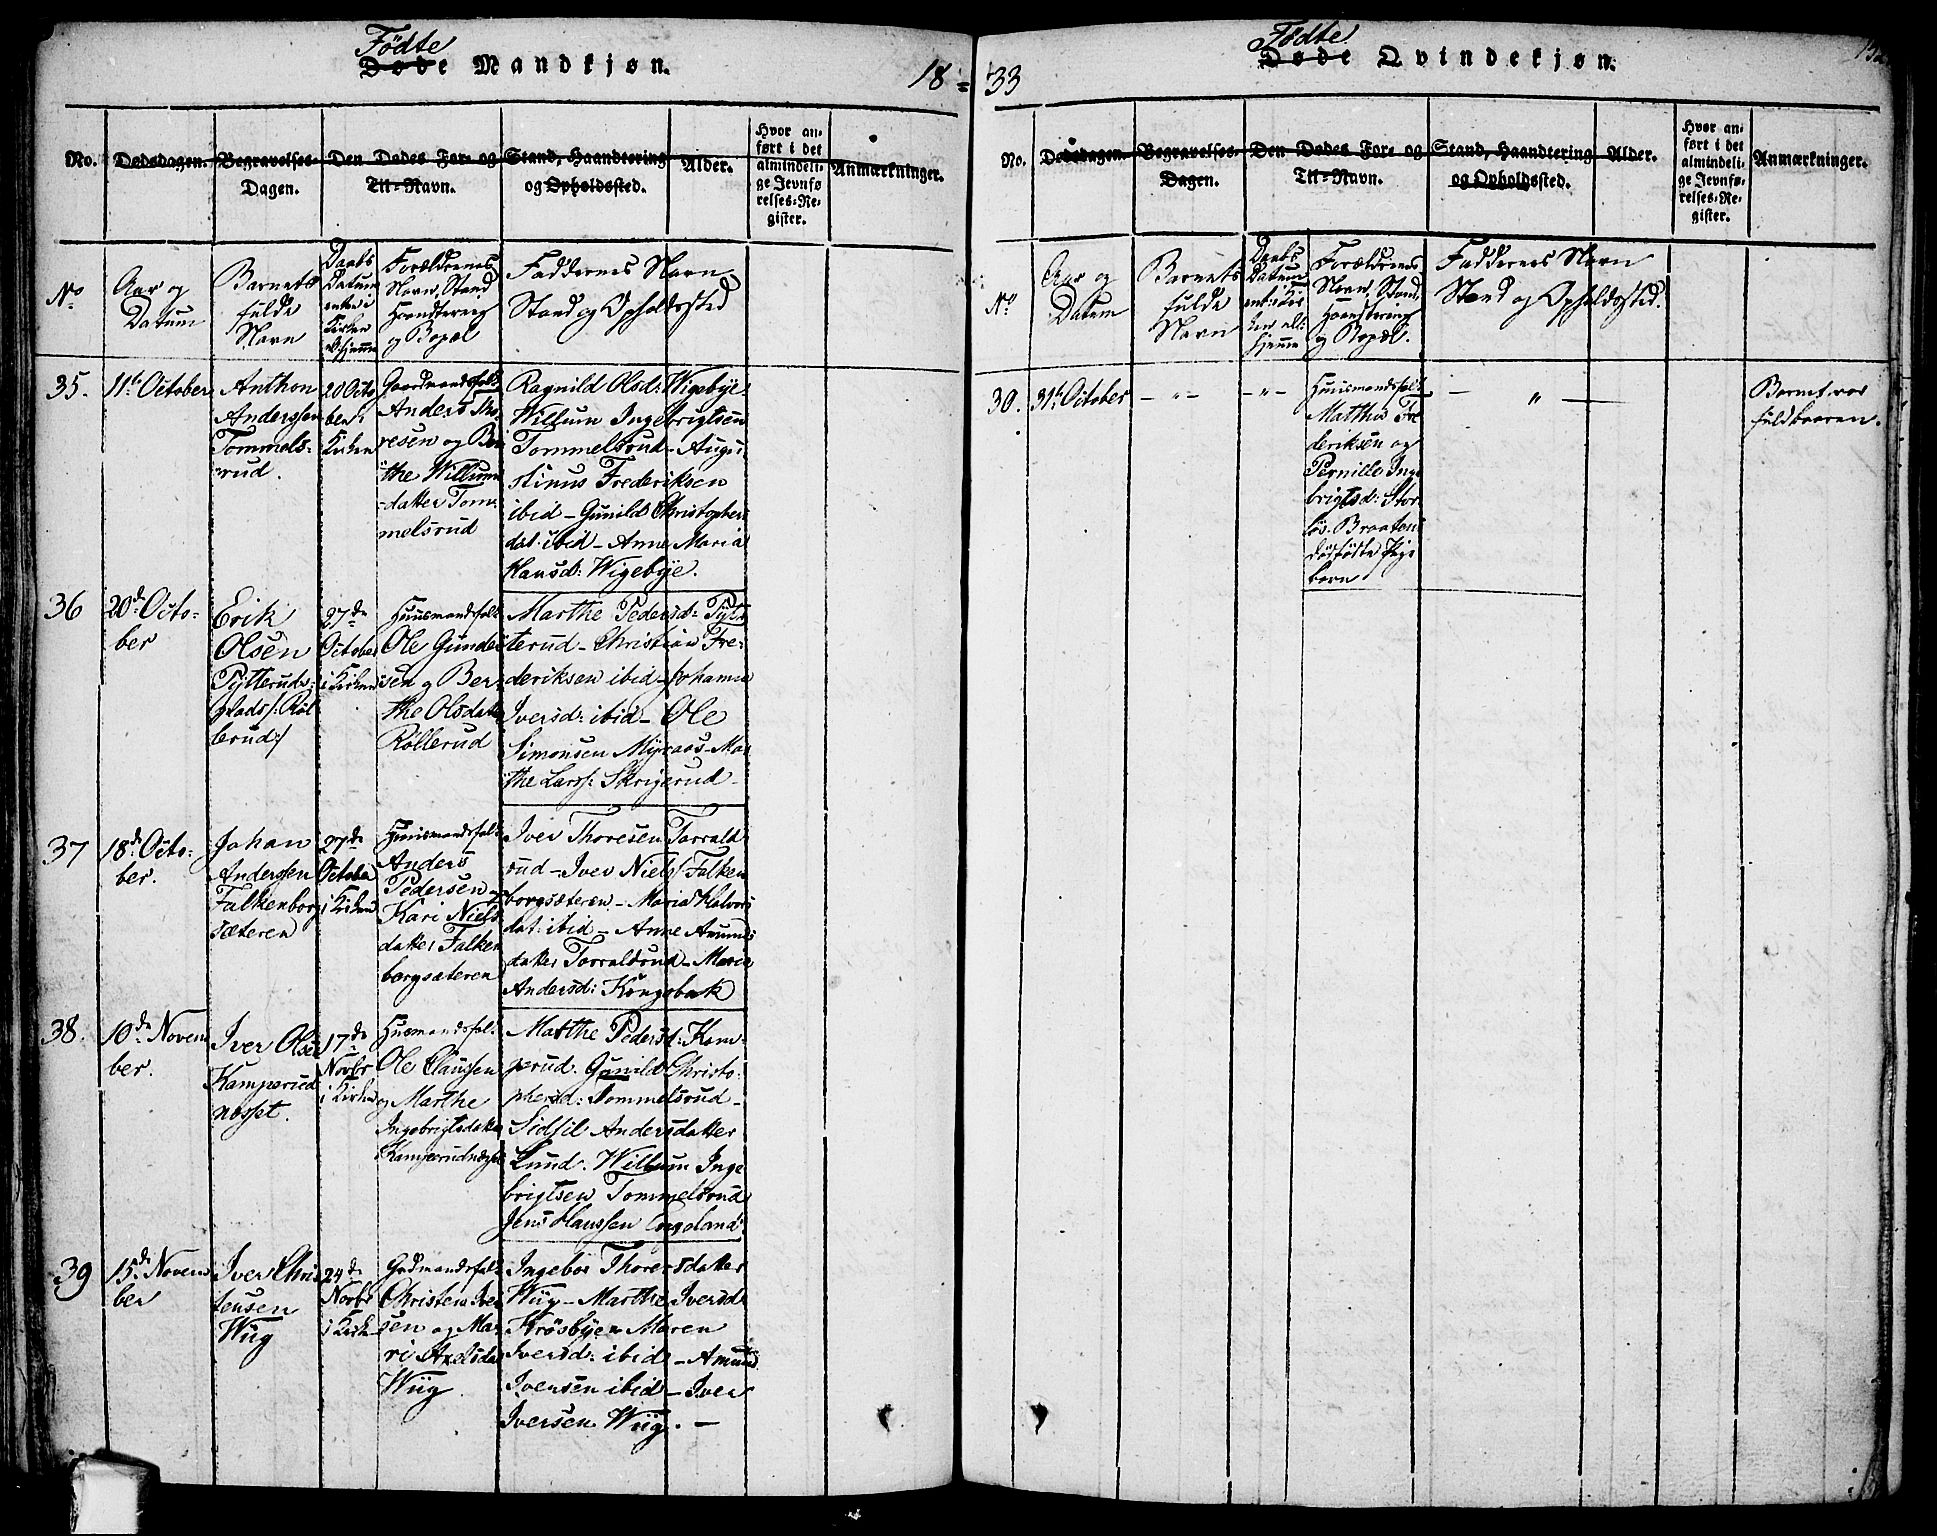 Fødte
Døde Mandkjøn.
18 =
No.
Dødsdagen.
Begravelses-
Dagen.
Den Dødes For- og
Til-Navn.
Stand, Haandtering
og Opholdssted.
Alder.
Hvor an-
ført i det
almindeli-
ge Jevnfø-
relses-Re-
gister.
Anmærkninger.
No
Aar og
Datum
Barnets
fulde
Navn
Daabs
Datum
enten i
Kirken
Forældrenes
Navn, Stand
Haandtering
og Bopæl
Faddernes Navn
Stand og Opholdssted
35.
11te October
Anthon
Anderssen
Tommels-
rud.
20 Octo
ber i
Kirken
Gaardmandsfolk
Anders Tho
resen og Ber
the Willums
-datter Tom-
melsrud
Ragnild Olsd: Wigebye-
Willum Ingebrigtsen
Tommelsrud - Augu-
stinus Frederiksen
ibid - Gunild Christophers
dat. ibid - Anne Maria
Hansd: Wigebye.
36
20de Octo-
ber
Erik
Olsen
Pytteruds-
plads /: Røl
lerud :/
27de
October
i Kirken
Huusmandsfolk
Ole Gunder
sen og Ber-
the Olsdatter
Røllerud
Marthe Pedersd: Pyt-
terud - Christian Fre-
deriksen ibid - Johanne
Iversd: ibid - Ole
Simonsen Myraas - Mar
the Larss: Skrigerud -
37
18de Octo-
ber.
Johan
Anderssen
Falkenborg
sæteren
27de
October
i Kirken
Huusmandsfolk
Anders
Pedersen
Kari Niels
datter Falken
borgsæteren
Iver Thoresen Torrald
rud - Iver Niels/ Falken
borgsæteren - Maria Halvors
dat: ibid - Anne Amunds
datter Torraldsrud - Maria
Andersd: Kongsbak
38.
10de Novem
ber.
Iver Olsen
Kamperud
næsset.
17de
Novbr
i Kirken
Husmandsfolk
Ole Claussen
og Marthe
Ingebrigtsdatter
Kamperudnæsset
Marthe Pedersd: Kam-
perud. Gunild Christo-
phersd: Tommelsrud -
Sidsil Andersdatter
Lund. Willum Inge
brigtsen Tommelsrud
Jens Hanssen Engeland
39
15de Novem
ber
Iver Chris
tensen
Wiig
24de
Novbr
i Kirken
Grdmandsfolk
Christen Iver
sen og Ma-
ri Axelsdat
Wiig
Ingebor Thorersdatter
Wiig - Marthe Iversd
Krosbye - Maren
Iversd: ibid - Amund
Iversen ibid - Iver
Iversen Wiig. -
33
Fødte
Døde Qvindekjøn.
No.
Dødsdagen.
Begravelses-
Dagen.
Den Dødes For- og
Til-Navn.
Stand, Haandtering
og Opholdssted.
Alder.
Hvor an-
ført i det
almindeli-
ge Jevnfø-
relses-Re-
gister.
Anmærkninger.
No
Aar og
Datum
Barnets
fulde
Navn
Daabs
Datum
ent: i Kir
ken ell:
hjemme
Forældrenes
Navn, Stand
Haandtering
og Bopæl.
Faddernes Navn
Stand og Opholdssted.
30.
31te October
- " -
- " -
Huusmandsfolk
Matthis Fre
deriksen og
Pernille Inge
brigtsd: Stor
løs-Braaten
dødfødte Pige
barn
- " -
Barnet var
fuldbaaren.